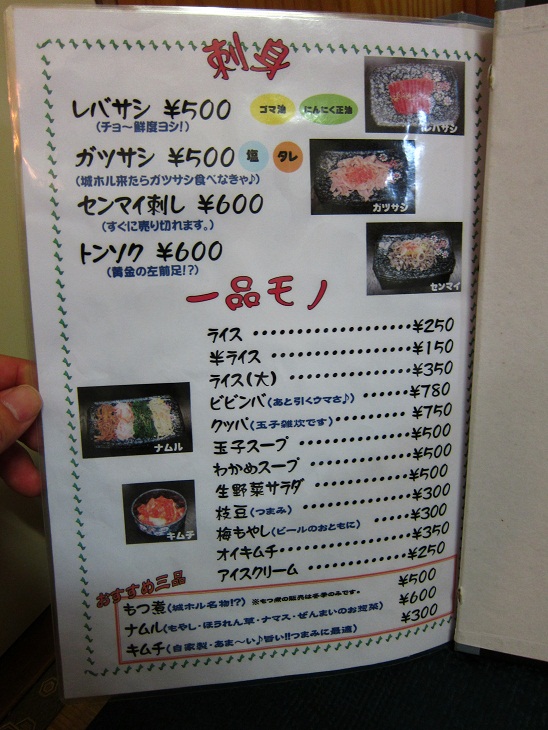 刺身
レバサシ ¥500 ゴマ油 にんにく正油
(チョ～鮮度ヨシ!)
レバサシ
ガツサシ ¥500 塩 タレ
(城ホル来たらガツサシ食べなきゃ♪)
ガツサシ
センマイ刺し ¥600
(すぐに売り切れます。)
トンソク ¥600
(黄金の左前足!?)
センマイ
一品モノ
ライス ¥250
半ライス ¥150
ライス(大) ¥350
ビビンバ(あと引くウマさ♪) ¥780
クッパ(玉子雑炊です) ¥750
玉子スープ ¥500
わかめスープ ¥500
生野菜サラダ ¥500
枝豆(つまみ) ¥300
梅もやし(ビールのおともに) ¥300
オイキムチ ¥350
アイスクリーム ¥250
ナムル
キムチ
おすすめ三品
もつ煮(城ホル名物!?) ※もつ煮の販売は冬季のみです。 ¥500
ナムル(もやし・ほうれん草・ナマス・ぜんまいのお惣菜) ¥600
キムチ(自家製・あま～い♪旨い!!つまみに最適) ¥300